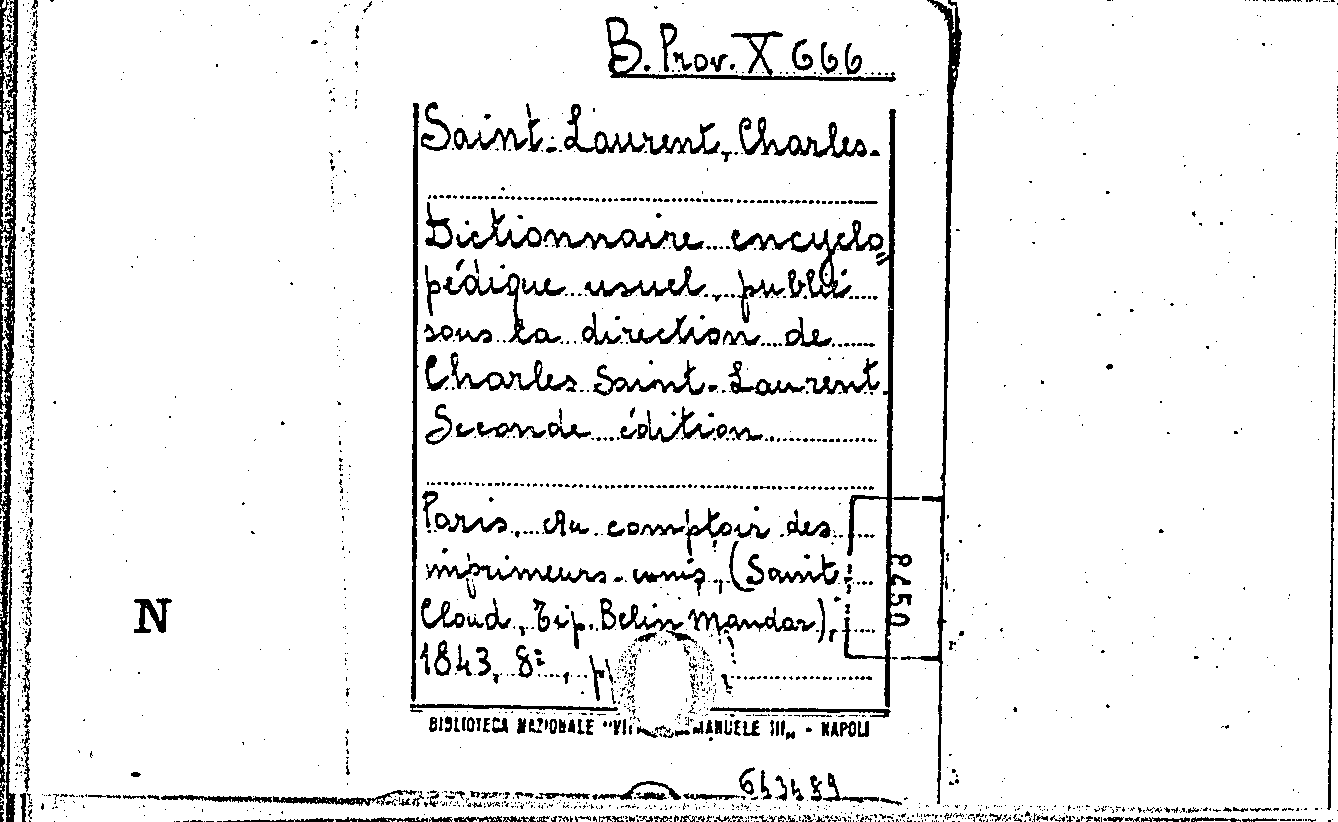 B. Prov. X 666
Saint-Laurent, Charles.
Dictionnaire encyclo=
pédique usuel, publié
sous la direction de
Charles Saint-Laurent.
Seconde édition
Paris, Au comptoir des
imprimeurs-unis, (Saint
Cloud, Tip. Belin Mandar),
1843, 8º, p
BIBLIOTECA NAZIONALE "VI ANUELE III„ - NAPOLI
N